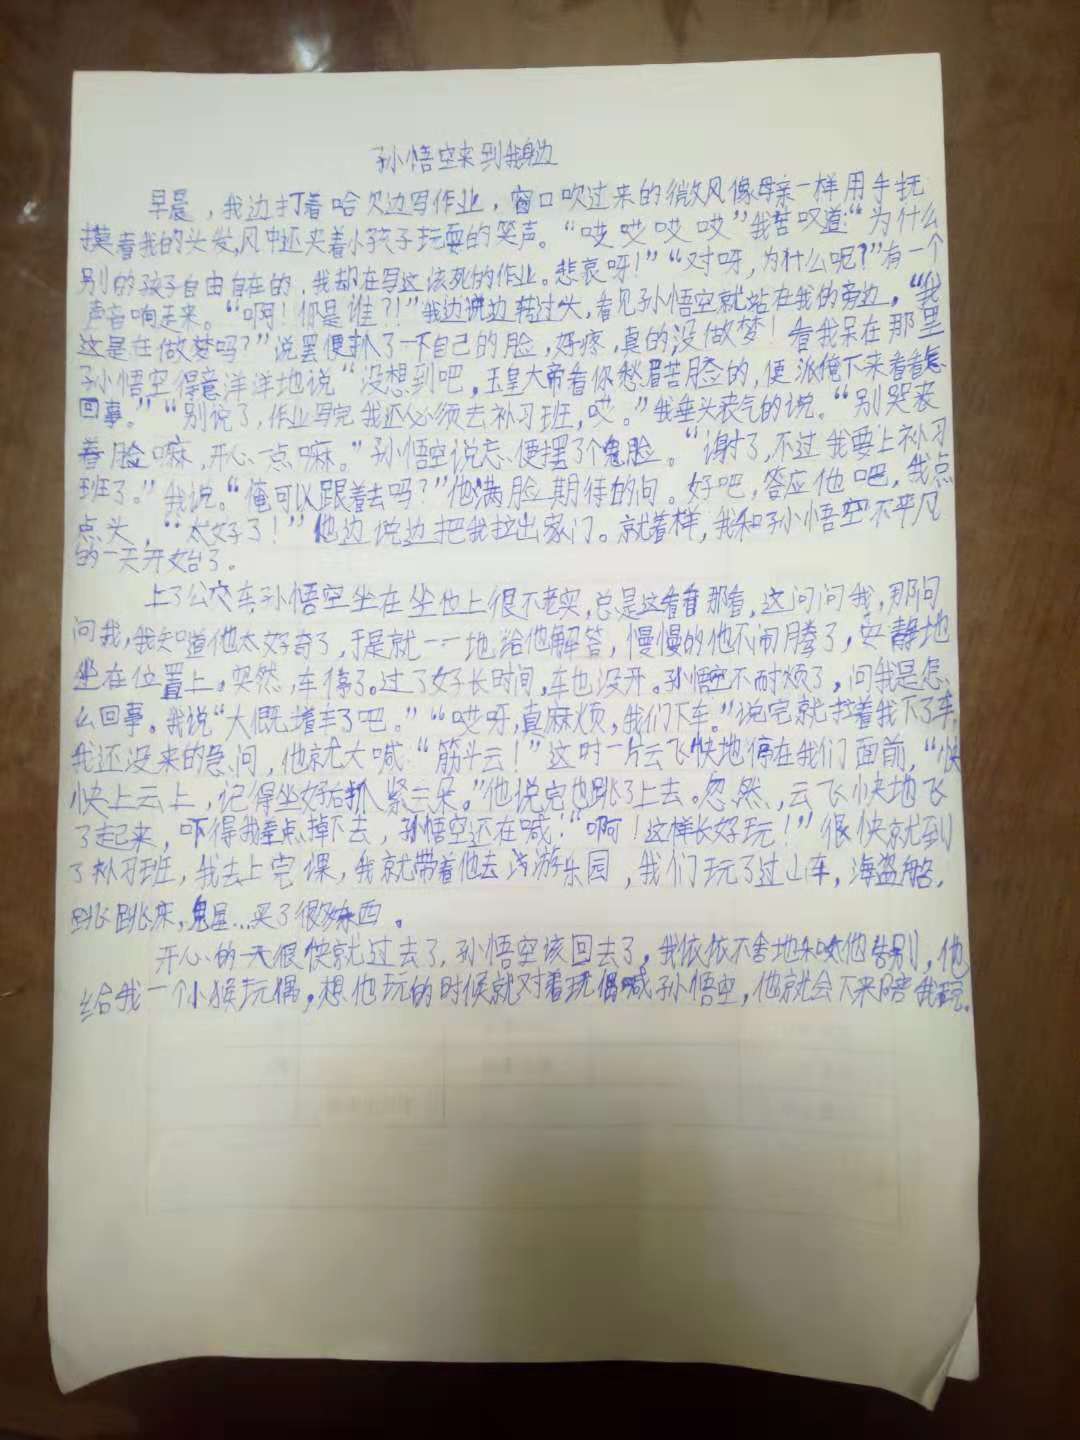 孙悟空来到我身边
早晨，我边打着哈欠边写作业，窗口吹过来的微风像母亲一样用手抚
摸着我的头发,风中还夹着小孩子玩耍的笑声。“哎哎哎哎”我苦叹道:“为什么
别的孩子自由自在的，我却在写这该死的作业。悲哀呀！”“对呀,为什么呢?”有一个
声音响起来。“啊！你是谁?!”我边说边转过头，看见孙悟空就站在我的旁边，“我
这是在做梦吗？”说罢便扒了一下自己的脸，好疼，真的没做梦！看我呆在那里
孙悟空得意洋洋地说“没想到吧，玉皇大帝看你愁眉苦脸的，便派俺下来看看怎
回事。”“别说了，作业写完我还必须去补习班，哎。”我垂头丧气的说。“别哭丧
着脸嘛，开心一点嘛。”孙悟空说忘、便摆了个鬼脸。“谢了，不过我要上补习
班了。”我说。“俺可以跟着去吗？”他满脸期待的问。好吧，答应他吧，我点
点头，“太好了！”他边说边把我拉出家门。就着样，我和孙悟空不平凡
的一天开始了。
上了公交车孙悟空坐在坐位上很不老实，总是这看看那看，这问问我，那问
问我，我知道他太好奇了，于是就一一地给他解答，慢慢的他不闹腾了，安静地
坐在位置上。突然，车停了。过了好长时间，车也没开。孙悟空不耐烦了，问我是怎
么回事。我说“大概堵车了吧。”“哎呀,真麻烦，我们下车。”说完就拉着我下了车,
我还没来的急问，他就大喊：“筋斗云！”这时一片云飞快地停在我们面前，“快
快上云上，记得坐好后抓紧云朵。”他说完也跳了上去。忽然，云飞快地飞
了起来，吓得我差点掉下去，孙悟空还在喊：“啊！这样长好玩！”很快就到
了补习班，我去上完课，我就带着他去游乐园，我们玩了过山车，海盗船，
跳跳床，鬼屋...买了很多东西。
开心的一天很快就过去了，孙悟空该回去了，我依依不舍地和他告别，他
给我一个小猴玩偶，想他玩的时候就对着玩偶喊孙悟空，他就会下来陪我玩。